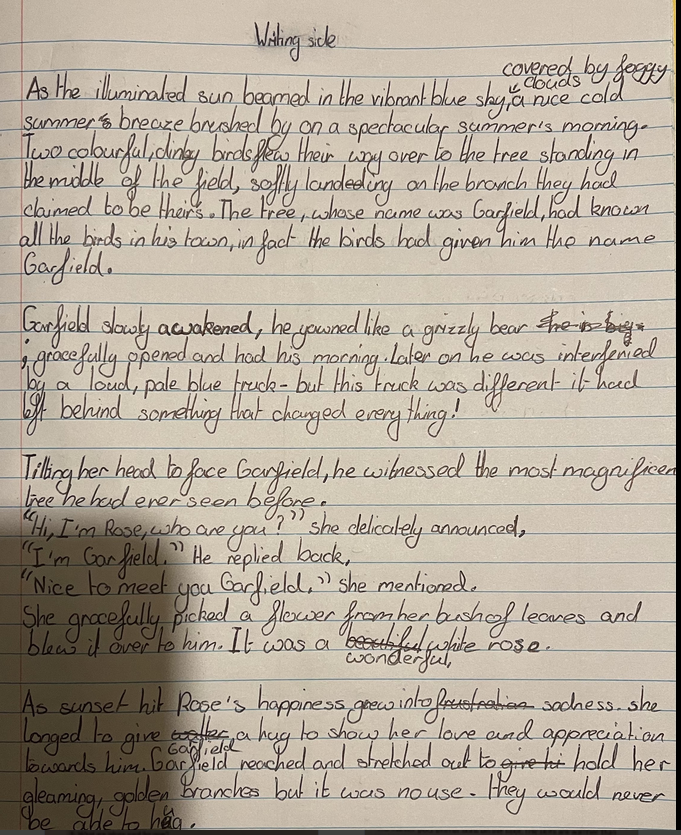 Writing side
covered by foggy
clouds
As the illuminated sun beamed in the vibrant blue sky, a nice cold
summer's breaze brushed by on a spectacular summer's morning.
Two colourful, dinky birds flew their way over to the tree standing in
the middle of the field, softly landeding on the branch they had
claimed to be theirs. The tree, whose name was Garfield, had known
all the birds in his town, in fact the birds had given him the name
Garfield.
Garfield slowly awakened, he yawned like a grizzly bear the is big.
; gracefully opened and had his morning. Later on he was interfenied
by a loud, pale blue truck - but this truck was different it had
left behind something that changed everything!
Tilting her head to face Garfield, he witnessed the most magnificen
tree he had ever seen before.
"Hi, I'm Rose, who are you?" she delicately announced,
"I'm Garfield." He replied back,
"Nice to meet you Garfield," she mentioned.
She gracefully picked a flower from her bush of leaves and
blew it over to him. It was a beautiful white rose.
wonderful,
As sunset hit Rose's happiness grew into frustration sadness. she
longed to give a hug to show her love and appreciation
Garfield
towards him. Garfield reached and stretched out to give hi hold her
gleaming, golden branches but it was no use. They would never
be able to hug.